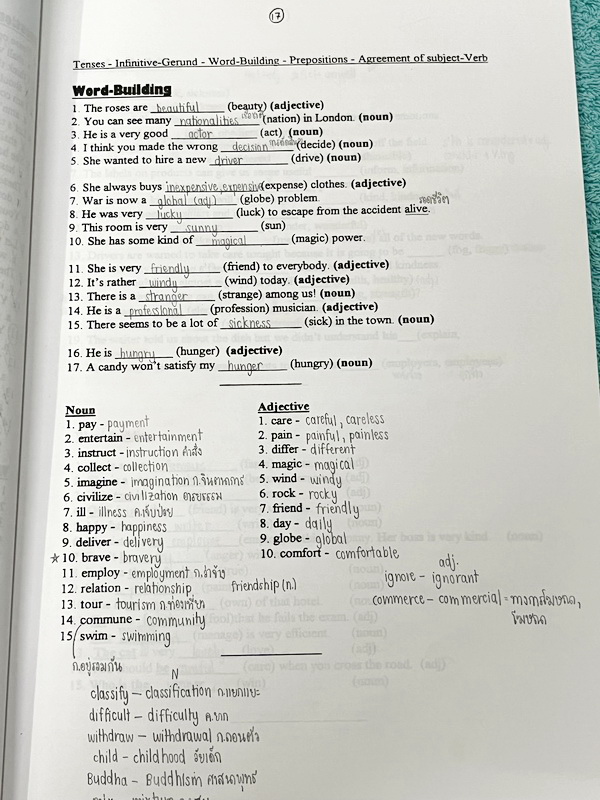 17
Tenses - Infinitive-Gerund - Word-Building - Prepositions - Agreement of subject-Verb
Word-Building
1. The roses are beautiful (beauty) (adjective)
2. You can see many nationalities (nation) in London. (noun)
3. He is a very good actor (act) (noun)
4. I think you made the wrong decision (decide) (noun)
5. She wanted to hire a new driver (drive) (noun)
6. She always buys inexpensive, expensive (expense) clothes. (adjective)
7. War is now a global (adj) (globe) problem.
รอดชีวิต
8. He was very lucky (luck) to escape from the accident alive.
9. This room is very sunny (sun)
10. She has some kind of magical (magic) power.
11. She is very friendly (friend) to everybody. (adjective)
12. It's rather windy (wind) today. (adjective)
13. There is a stranger (strange) among us! (noun)
14. He is a professional (profession) musician. (adjective)
15. There seems to be a lot of sickness (sick) in the town. (noun)
16. He is hungry (hunger) (adjective)
17. A candy won't satisfy my hunger (hungry) (noun)
Noun
1. pay - payment
2. entertain - entertainment
3. instruct - instruction คำสั่ง
4. collect - collection
5. imagine - imagination ก.จินตนาการ
6. civilize - civilization อารยธรรม
7. ill - illness ค.เจ็บป่วย
8. happy - happiness
9. deliver - delivery
★10. brave - bravery
11. employ - employment ก.ว่าจ้าง
12. relation - relationship friendship (n.)
13. tour - tourism ก.ท่องเที่ยว
14. commune - community
15. swim - swimming
ก.อยู่รวมกัน
Adjective
1. care - careful, careless
2. pain - painful, painless
3. differ - different
4. magic - magical
5. wind - windy
6. rock - rocky
7. friend - friendly
8. day - daily
9. globe - global
10. comfort - comfortable
adj.
ignore - ignorant
commerce - commercial = ทางการโฆษณา,
โฆษณา
N
classify - classification ก.แยกแยะ
difficult - difficulty ค.ยาก
withdraw - withdrawal ก.ถอนตัว
child - childhood วัยเด็ก
Buddha - Buddhism ศาสนาพุทธ